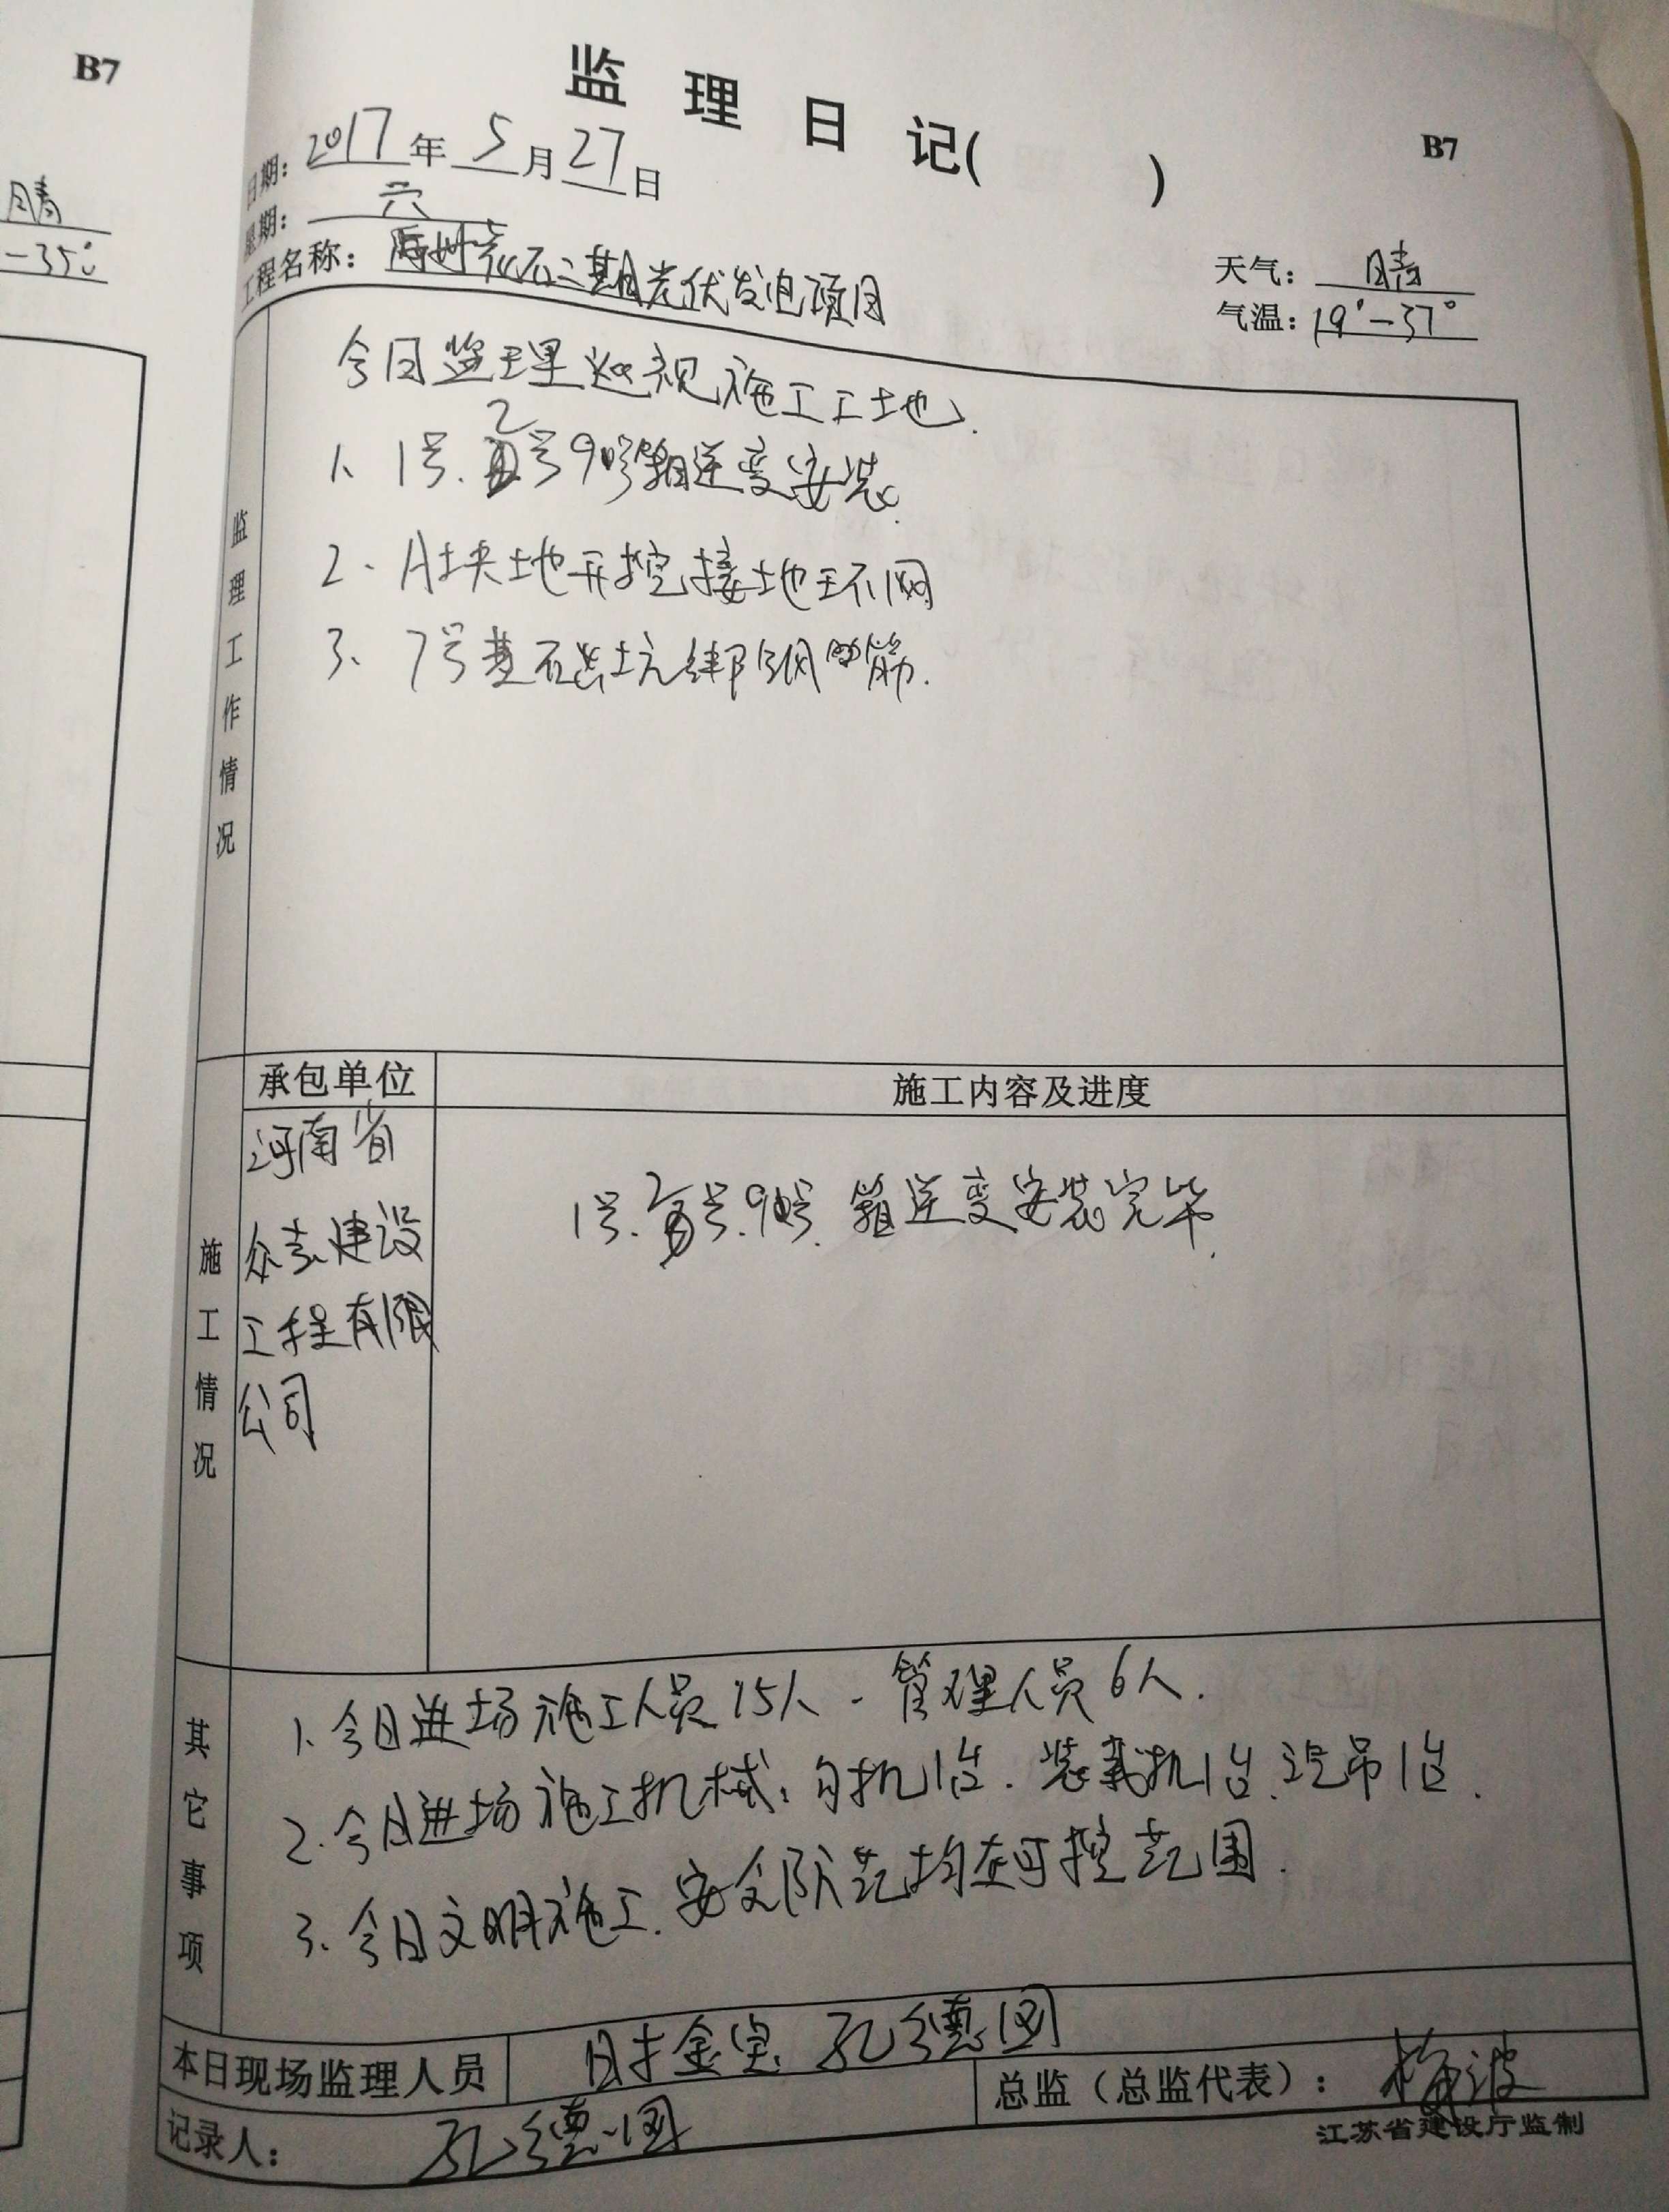 B7
晴
-35℃
监理日记( )
B7
日期：2017年5月27日
星期：六
工程名称：二期光伏发电项目
天气：晴
气温：19°-37°
监理工作情况
今日监理巡视施工工地.
1、1号.2号9号箱逆变安装.
2、A块土地开挖接地环网
3、7号基础坑绑钢筋.
承包单位
施工内容及进度
施工情况
河南省
建设
工程有限
公司
1号.2号.9号.箱逆变安装完毕.
其它事项
1、今日进场施工人员15人.管理人员6人.
2.今日进场施工机械：勾机1台.装载机1台.汽吊1台.
3、今日文明施工.安全防范均在可控范围.
本日现场监理人员
孔德团
总监（总监代表）：梅波
记录人：孔德团
江苏省建设厅监制